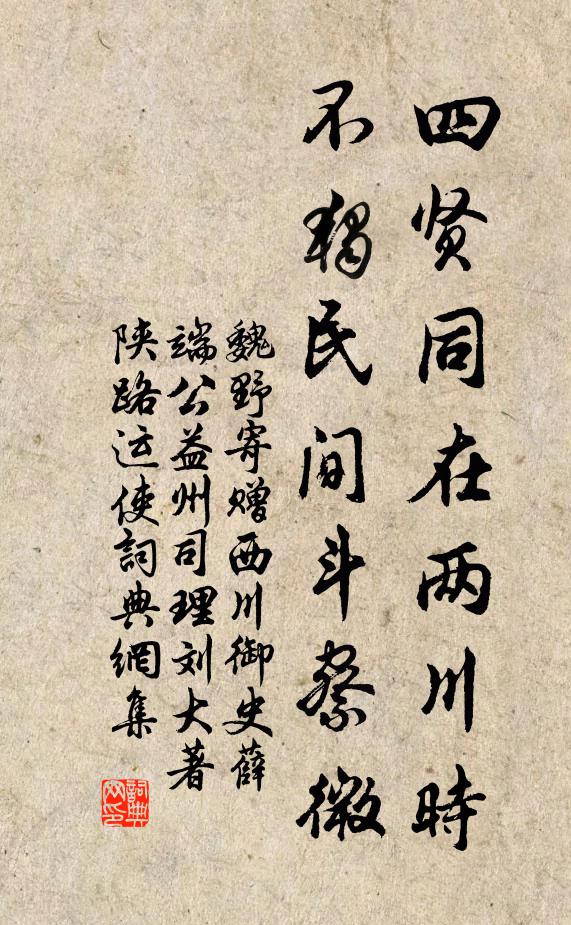 四贤同在两川時
不独民间斗祭微
魏野寄赠西川御史薛
端公益州司理刘大著
陕路运使詞典網集
詞典
网印